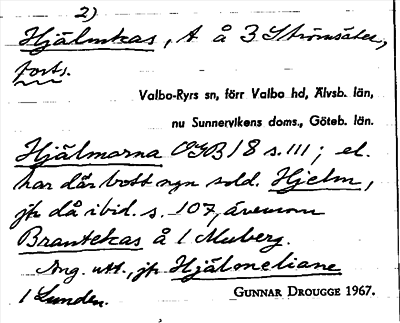 2)
Hjälmkas, t å 3 Strömsäter,
forts.
Valbo-Ryrs sn, förr Valbo hd, Älvsb. län,
nu Sunnervikens doms., Göteb. län.
Hjälmarna OGB 18 s. 111; el.
har där bott ngn sold. Hjelm,
jfr då ibid. s. 107, även
Brantekas å 1 Muberg.
Ang. utt., jfr Hjälmeliane
1 Lunden.
GUNNAR DROUGGE 1967.